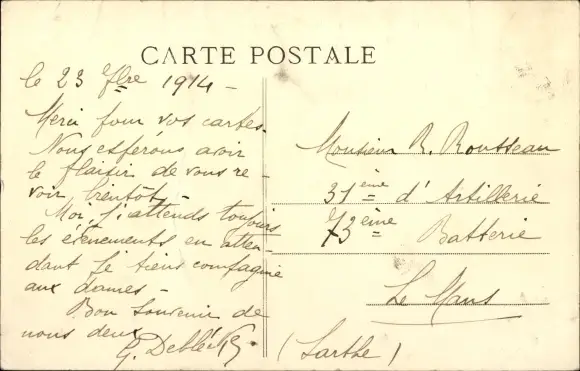 CARTE POSTALE
le 23 7bre 1914 -
Merci pour vos cartes.
Nous espérons avoir
le plaisir de vous re -
voir bientôt -
Moi, j'attends toujours
les évènements en atten-
dant je tiens compagnie
aux dames -
Bon Souvenir de
nous deux
G.
Monsieur R. Rousseau
31ème d'Artillerie
73ème Batterie
Le Mans
(Sarthe)